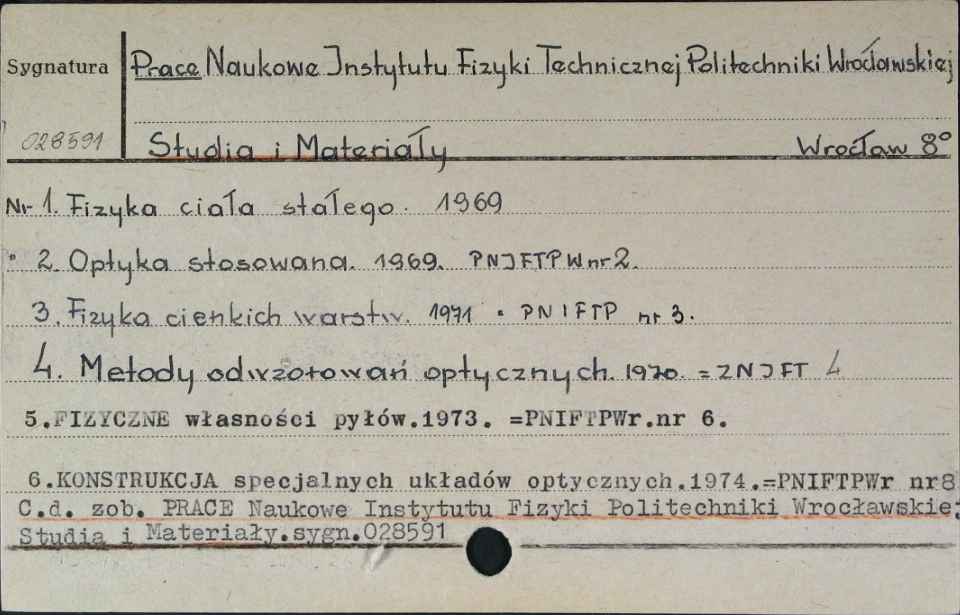 Sygnatura
Prace Naukowe Instytutu Fizyki Technicznej Politechniki Wrocławskiej
028591
Studia i Materiały Wrocław 8°
Nr 1. Fizyka ciała stałego. 1969
2. Optyka stosowana. 1969. PNIFTPW nr 2.
3. Fizyka cienkich warstw. 1971 = PNIFTP nr 3.
4. Metody odwzorowań optycznych. 1970. = ZNIFT 4
5.FIZYCZNE własności pyłów.1973. =PNIFTPWr.nr 6.
6.KONSTRUKCJA specjalnych układów optycznych.1974.=PNIFTPWr nr8
C.d. zob. PRACE Naukowe Instytutu Fizyki Politechniki Wrocławskiej
Studia i Materiały.sygn.028591